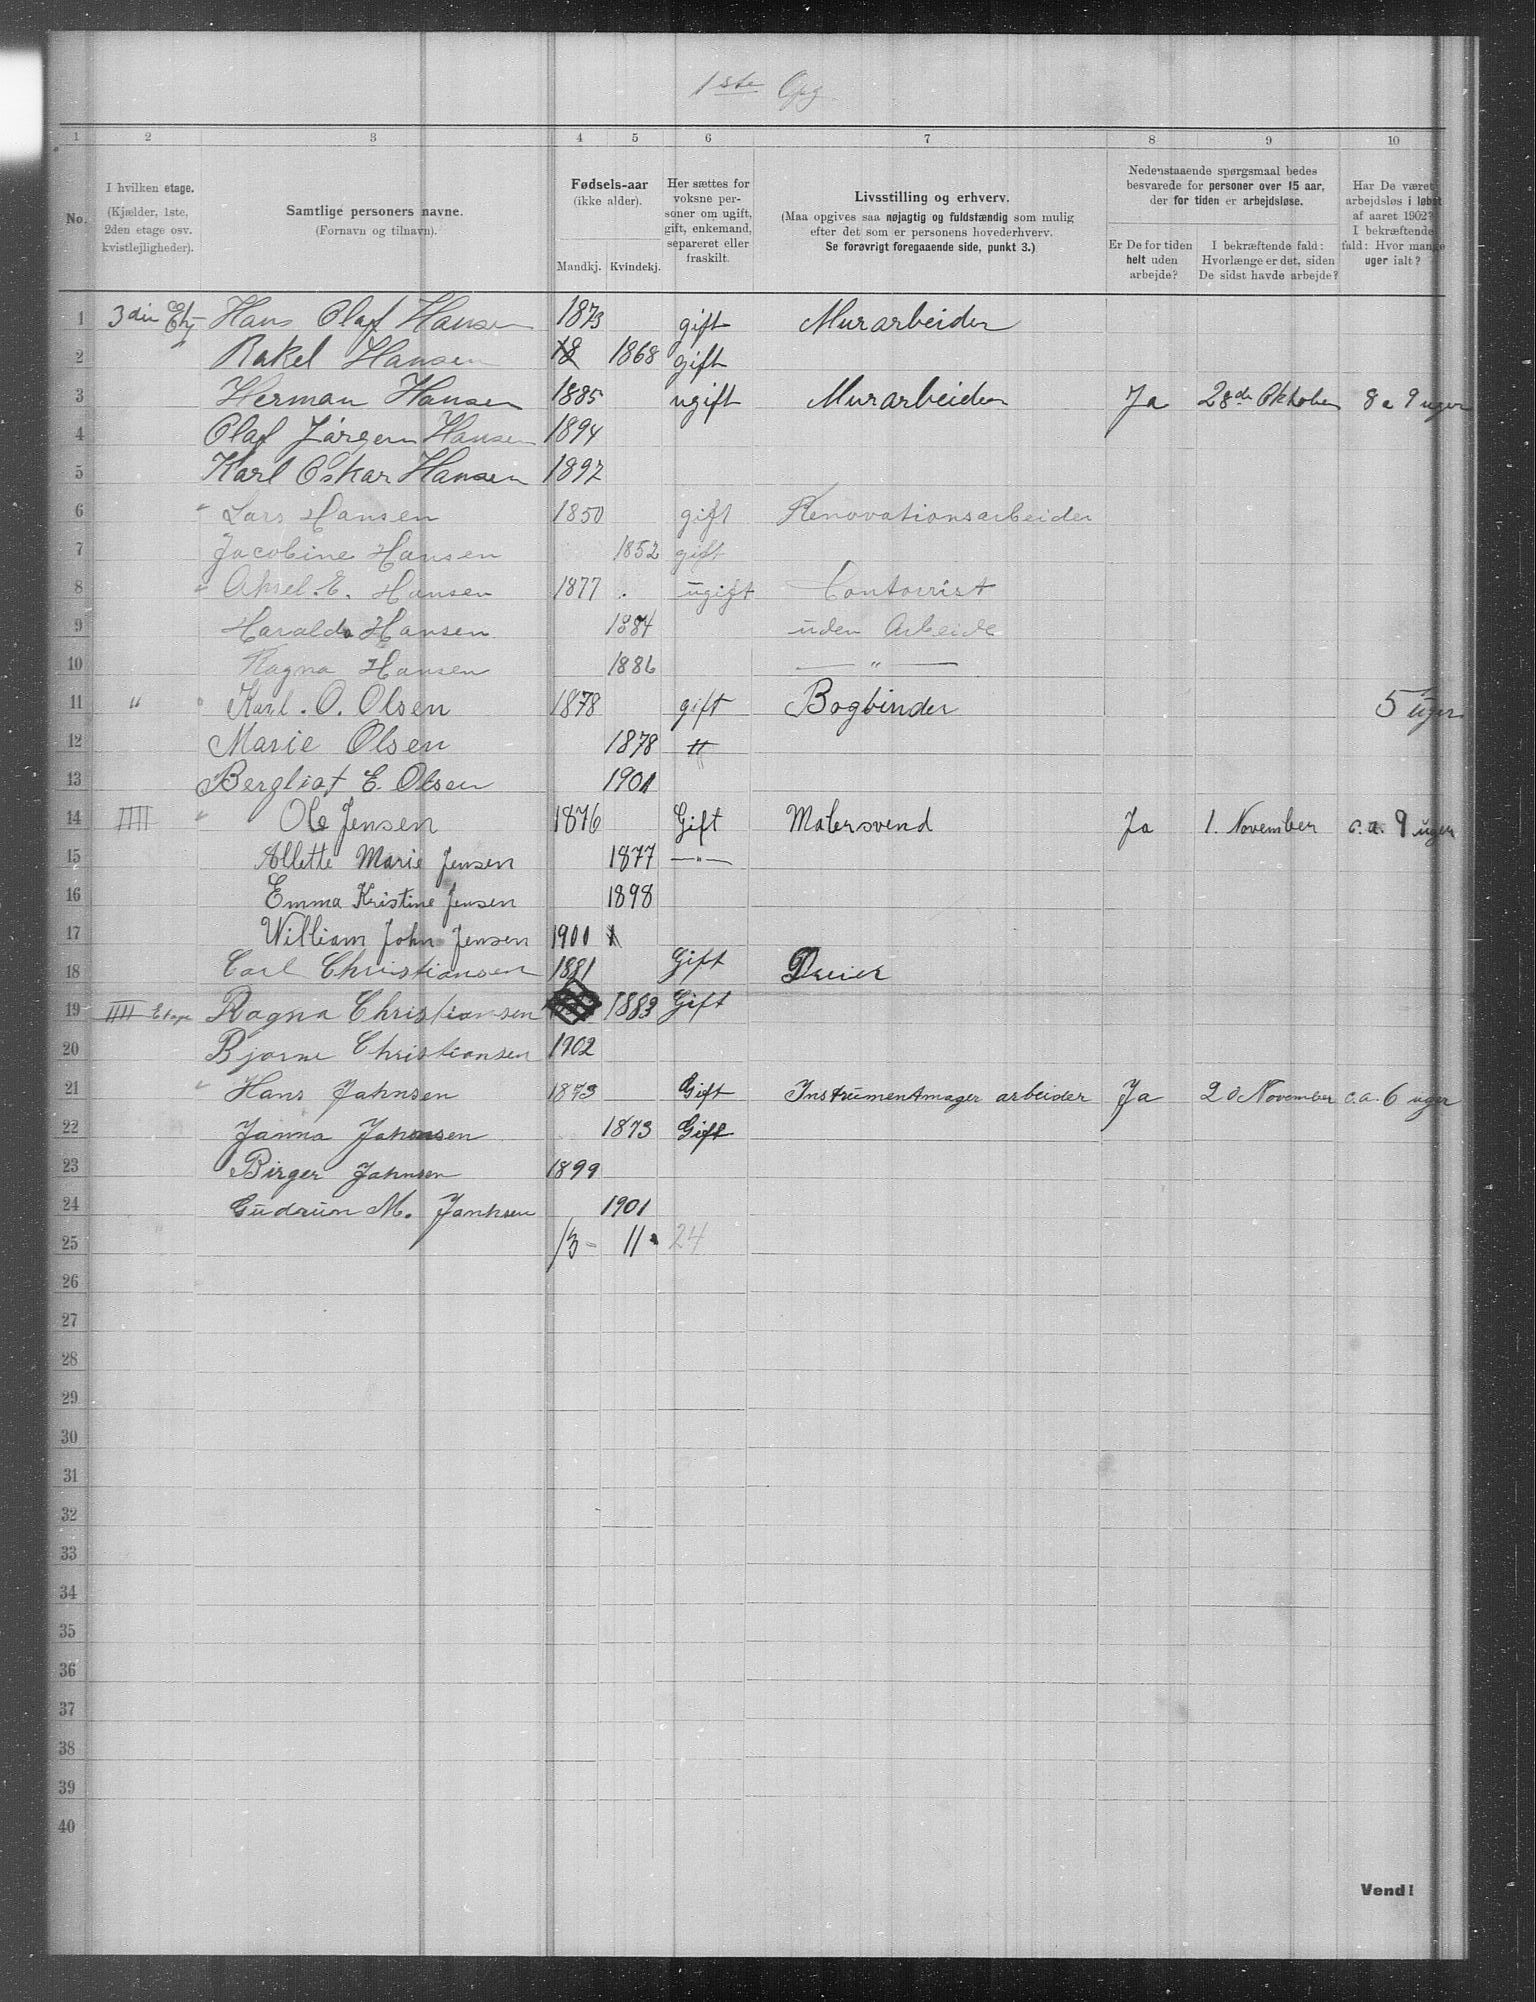 1ste Opg
1 2 3 4 5 6 7 8 9 10
No.
I hvilken etage.
(Kjælder, 1ste,
2den etage osv.
kvistlejligheder).
Samtlige personers navne.
(Fornavn og tilnavn).
Fødsels-aar
(ikke alder).
Mandkj. Kvindekj.
Her sættes for
voksne per-
soner om ugift,
gift, enkemand,
separeret eller
fraskilt.
Livsstilling og erhverv.
(Maa opgives saa nøjagtig og fuldstændig som mulig
efter det som er personens hovederhverv.
Se forøvrigt foregaaende side, punkt 3.)
Nedenstaaende spørgsmaal bedes
besvarede for personer over 15 aar,
der for tiden er arbejdsløse.
Er De for tiden
helt uden
arbejde?
I bekræftende fald:
Hvorlænge er det, siden
De sidst havde arbejde?
Har De været
arbejdsløs i løbet
af aaret 1902?
I bekræftende
fald: Hvor mange
uger ialt?
1 3die Etg Hans Olaf Hansen 1873 gift Murarbeider
2 " Rakel Hansen 18 1868 gift
3 Herman Hansen 1885 ugift Murarbeider Ja 28de Oktober 8 a 9 uger
4 Olaf Jørgen Hansen 1894
5 Karl Oskar Hansen 1897
6 " Lars Hansen 1850 gift Renovationsarbeider
7 Jacobine Hansen 1852 gift
8 " Aksel. E. Hansen 1877 . ugift Contorrist
9 Haralda Hansen 1884 uden Arbeide
10 Ragna Hansen 1886 — " —
11 " " Karl. O. Olsen 1878 gift Bogbinder 5 uger
12 Marie Olsen 1878 "
13 Bergliot E. Olsen 1901
14 IIII " Ole Jensen 1876 Gift Malersvend Ja 1. November c.a. 9 uger
15 Allette Marie Jensen 1877 — " —
16 Emma Kristine Jensen 1898
17 William John Jensen 1900 1
18 Carl Christiansen 1881 Gift Dreier
19 IIII Etage Ragna Christiansen 1883 Gift
20 Bjarne Christiansen 1902
21 " Hans Jahnsen 1873 Gift Instrumentmager arbeider Ja 20 November c.a. 6 uger
22 Janna Jahnsen 1873 Gift
23 Birger Jahnsen 1899
24 Gudrun M. Janhsen 1901
25 13 - 11 . 24
26
27
28
29
30
31
32
33
34
35
36
37
38
39
40
Vend!